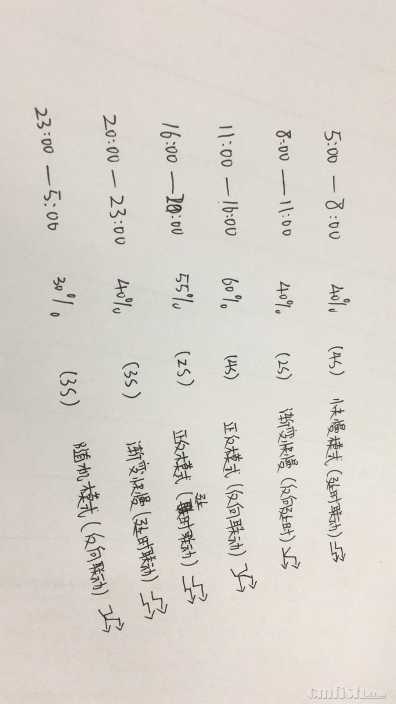 5:00 — 8:00 40% (4S) 快慢模式 (延时联动)
8:00 — 11:00 40% (2S) 渐变快慢 (反向延时)
11:00 — 16:00 60% (4S) 正反模式 (反向联动)
16:00 — 20:00 55% (2S) 正反模式 (延时联动)
20:00 — 23:00 40% (3S) 渐变快慢 (延时联动)
23:00 — 5:00 30% (3S) 随机模式 (反向联动)
cmfish.com